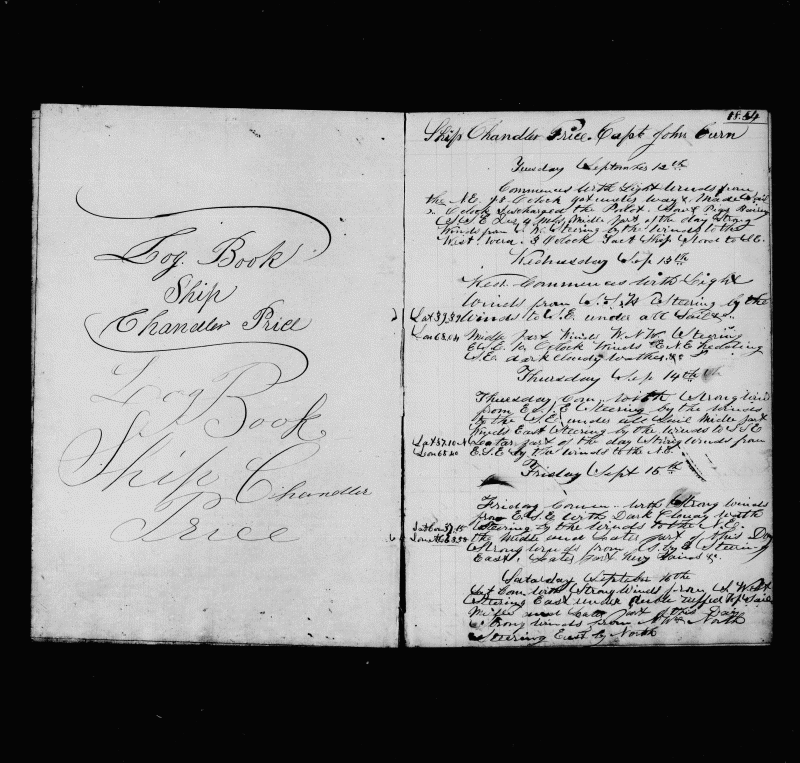 Log Book
Ship
Chandler Price
Log
Book
Ship Chandler
Price
1854
Ship Chandler Price. Capt John Curn
Tuesday September 12th
Commences with Light winds from
the N.E. got under way & Made Sail
O Clock discharged the Pilot.
Middle part of the day Strong
Winds from Steering by the winds to the
West Ward. 8 O Clock Tact Ship Stood to S.E.
Wednesday Sep 13th
Wed. Commences with Light
winds from Steering by the
Lat 37.39 winds to S.E. under all Sail &c.
Lon 68.04 Middle part Winds W.N.W. Steering
E.S.E. 10 O Clock Winds E.N.E. Heading
S.E. dark cloudy weather &c
Thursday Sep 14th
Thursday Com. with Strong Wind
from E. S. E Steering by the winds
to the S.E. under all Sail Middle part
winds East Steering by the winds to S S E
Lat 37.10 Later part of the day Strong Winds from
Lon 65.40 E.S.E. by the winds to the N.E.
Friday Sept 15th
Friday Comen. with Strong Winds
from E.S.E. with Dark Cloudy with
Steering by the Winds to the N.E.
the Middle and Later part of this Day
Strong winds from S. by E Steering
East. Later part &c.
Saturday September 16 the
Sat Com with Strong Winds from
Steering East under reefd Top Sails
Midle and Later part of the Day
Strong winds from North
Steering East by North